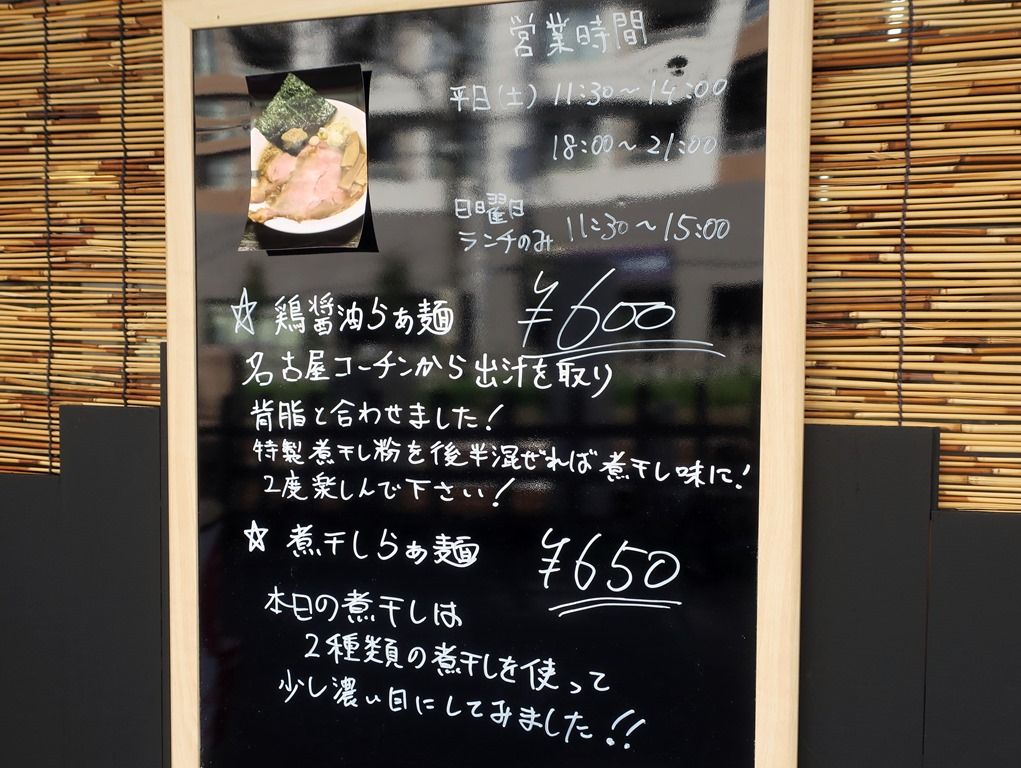 営業時間
平日(土) 11:30～14:00
18:00～21:00
日曜日
ランチのみ 11:30～15:00
☆ 鶏醤油らぁ麺 ¥600
名古屋コーチンから出汁を取り
背脂と合わせました!
特製煮干し粉を後半混ぜれば煮干し味に!
2度楽しんで下さい!
☆ 煮干しらぁ麺 ¥650
本日の煮干しは
2種類の煮干しを使って
少し濃い目にしてみました!!